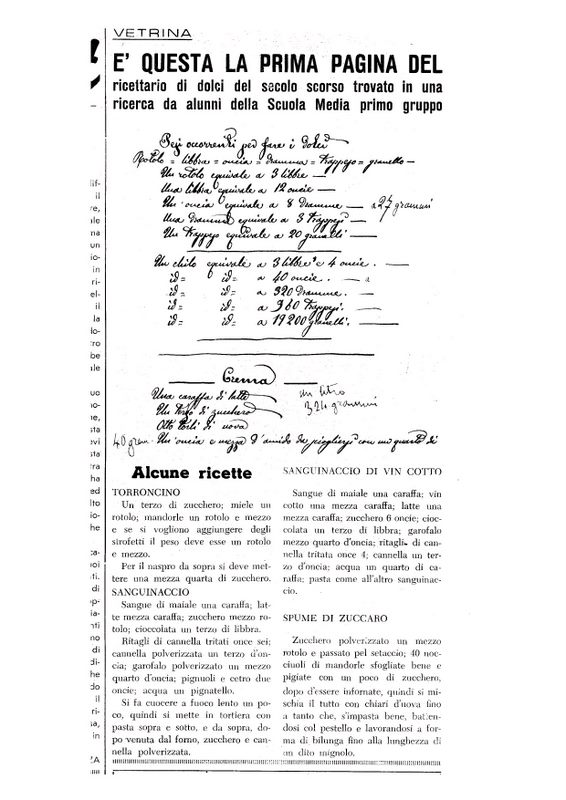 VETRINA
E' QUESTA LA PRIMA PAGINA DEL
ricettario di dolci del secolo scorso trovato in una
ricerca da alunni della Scuola Media primo gruppo
Pesi occorrenti per fare i dolci
Rotolo = libbra = oncia = dramma = trappeso = granello —
Un rotolo equivale a 3 libbre —
Una libbra equivale a 12 oncie —
Un'oncia equivale a 8 Dramme — a 27 grammi
Una Dramma equivale a 3 Trappesi —
Un Trappeso equivale a 20 granelli —
Un chilo equivale a 3 libbre e 4 oncie. —
id= id= a 40 oncie. —
id= id= a 320 Dramme. —
id= id= a 960 Trappesi. —
id= id= a 19200 granelli. —
Crema
Una caraffa di latte un litro
Un terzo di zucchero 324 grammi
Otto torli di uova
40 gram. Un'oncia e mezza d'amido da con un quarto di
Alcune ricette
TORRONCINO
Un terzo di zucchero; miele un
rotolo; mandorle un rotolo e mezzo
e se si vogliono aggiungere degli
sirofetti il peso deve esse un rotolo
e mezzo.
Per il naspro da sopra si deve met-
tere una mezza quarta di zucchero.
SANGUINACCIO
Sangue di maiale una caraffa; lat-
te mezza caraffa; zucchero mezzo ro-
tolo; cioccolata un terzo di libbra.
Ritagli di cannella tritati once sei;
cannella polverizzata un terzo d'on-
cia; garofalo polverizzato un mezzo
quarto d'oncia; pignuoli e cetro due
oncie; acqua un pignatello.
Si fa cuocere a fuoco lento un po-
co, quindi si mette in tortiera con
pasta sopra e sotto, e da sopra, do-
po venuta dal forno, zucchero e can-
nella polverizzata.
SANGUINACCIO DI VIN COTTO
Sangue di maiale una caraffa; vin
cotto una mezza caraffa; latte una
mezza caraffa; zucchero 6 oncie; cioc-
colata un terzo di libbra; garofalo
mezzo quarto d'oncia; ritagli di can-
nella tritata once 4; cannella un ter-
zo d'oncia; acqua un quarto di ca-
raffa; pasta come all'altro sanguinac-
cio.
SPUME DI ZUCCARO
Zucchero polverizzato un mezzo
rotolo e passato pel setaccio; 40 noc-
ciuoli di mandorle sfogliate bene e
pigiate con un poco di zucchero,
dopo d'essere infornate, quindi si mi-
schia il tutto con chiari d'nova fino
a tanto che, s'impasta bene, batten-
dosi col pestello e lavorandosi a for-
ma di bilunga fino alla lunghezza di
un dito mignolo.